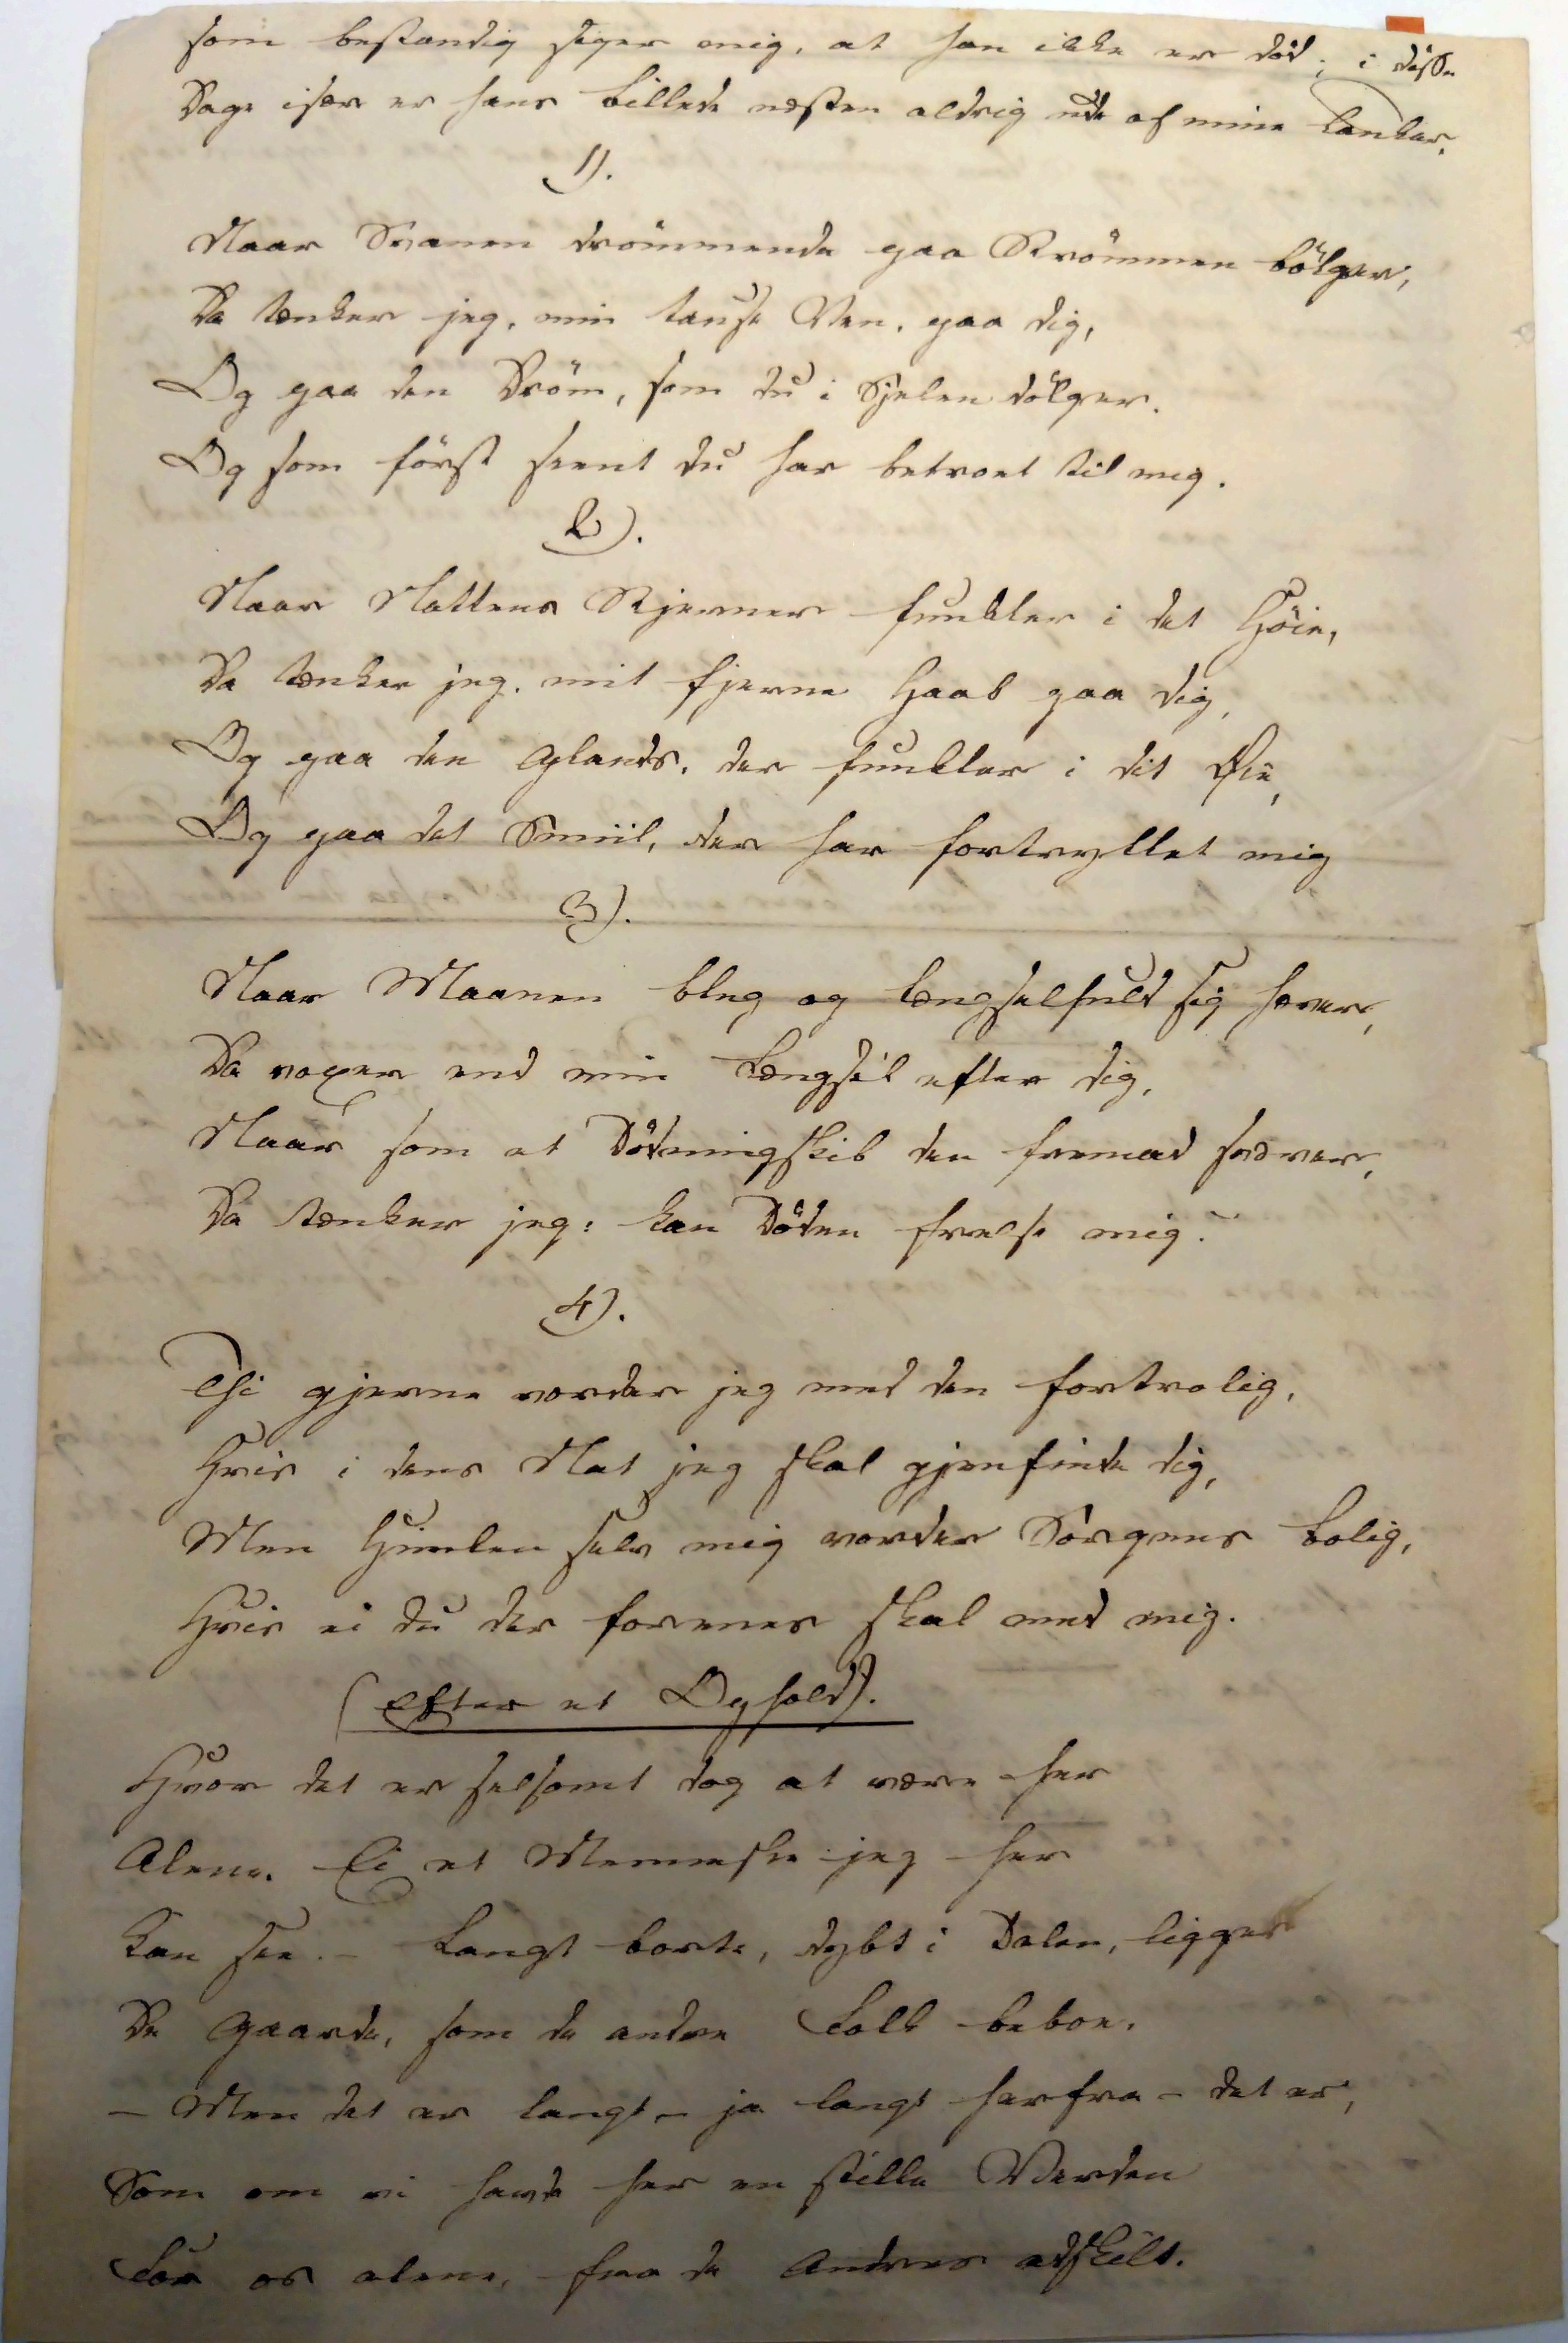 som bestandig siger mig, at han ikke er död; i disse
Dage især er hans Billede næsten aldrig ude af mine Tanker.
1).
Naar Svanen drömmende paa Strömmen bölger,
Da tænker jeg, min tause Ven, paa dig,
Og paa den Dröm, som du i Sjelen dölger.
Og som först seent du har betroet til mig.
2).
Naar Nattens Stjerner funkler i det Höie,
Da tænker jeg, mit fjerne Haab paa dig,
Og paa den Glands, der funkler i dit Öie,
Og paa det Smiil, der har fortryllet mig
3).
Naar Maanen bleg og længselfuld sig hæver,
Da vaagner end min Længsel efter dig,
Naar som et Dödningskib den fremad svæver,
Da tænker jeg: kan Döden frelse mig?
4).
Thi gjerne vorder jeg med den fortrolig,
Hvis i dens Nat jeg skal gjenfinde dig,
Men Himlen selv mig vorder Sorgens Bolig,
Hvis ei du der forenes skal med mig.
(Efter et Ophold).
Hvor det er selsomt dog at være her
Alene. Ei et Menneske jeg her
Kan see. – Langt borte, dybt i Dalen, ligger
De Gaarde, som de andre Folk beboe.
– Men det er langt – ja langt herfra – det er,
Som om vi havde her en stille Verden
For os alene, fra de Andres adskilt.